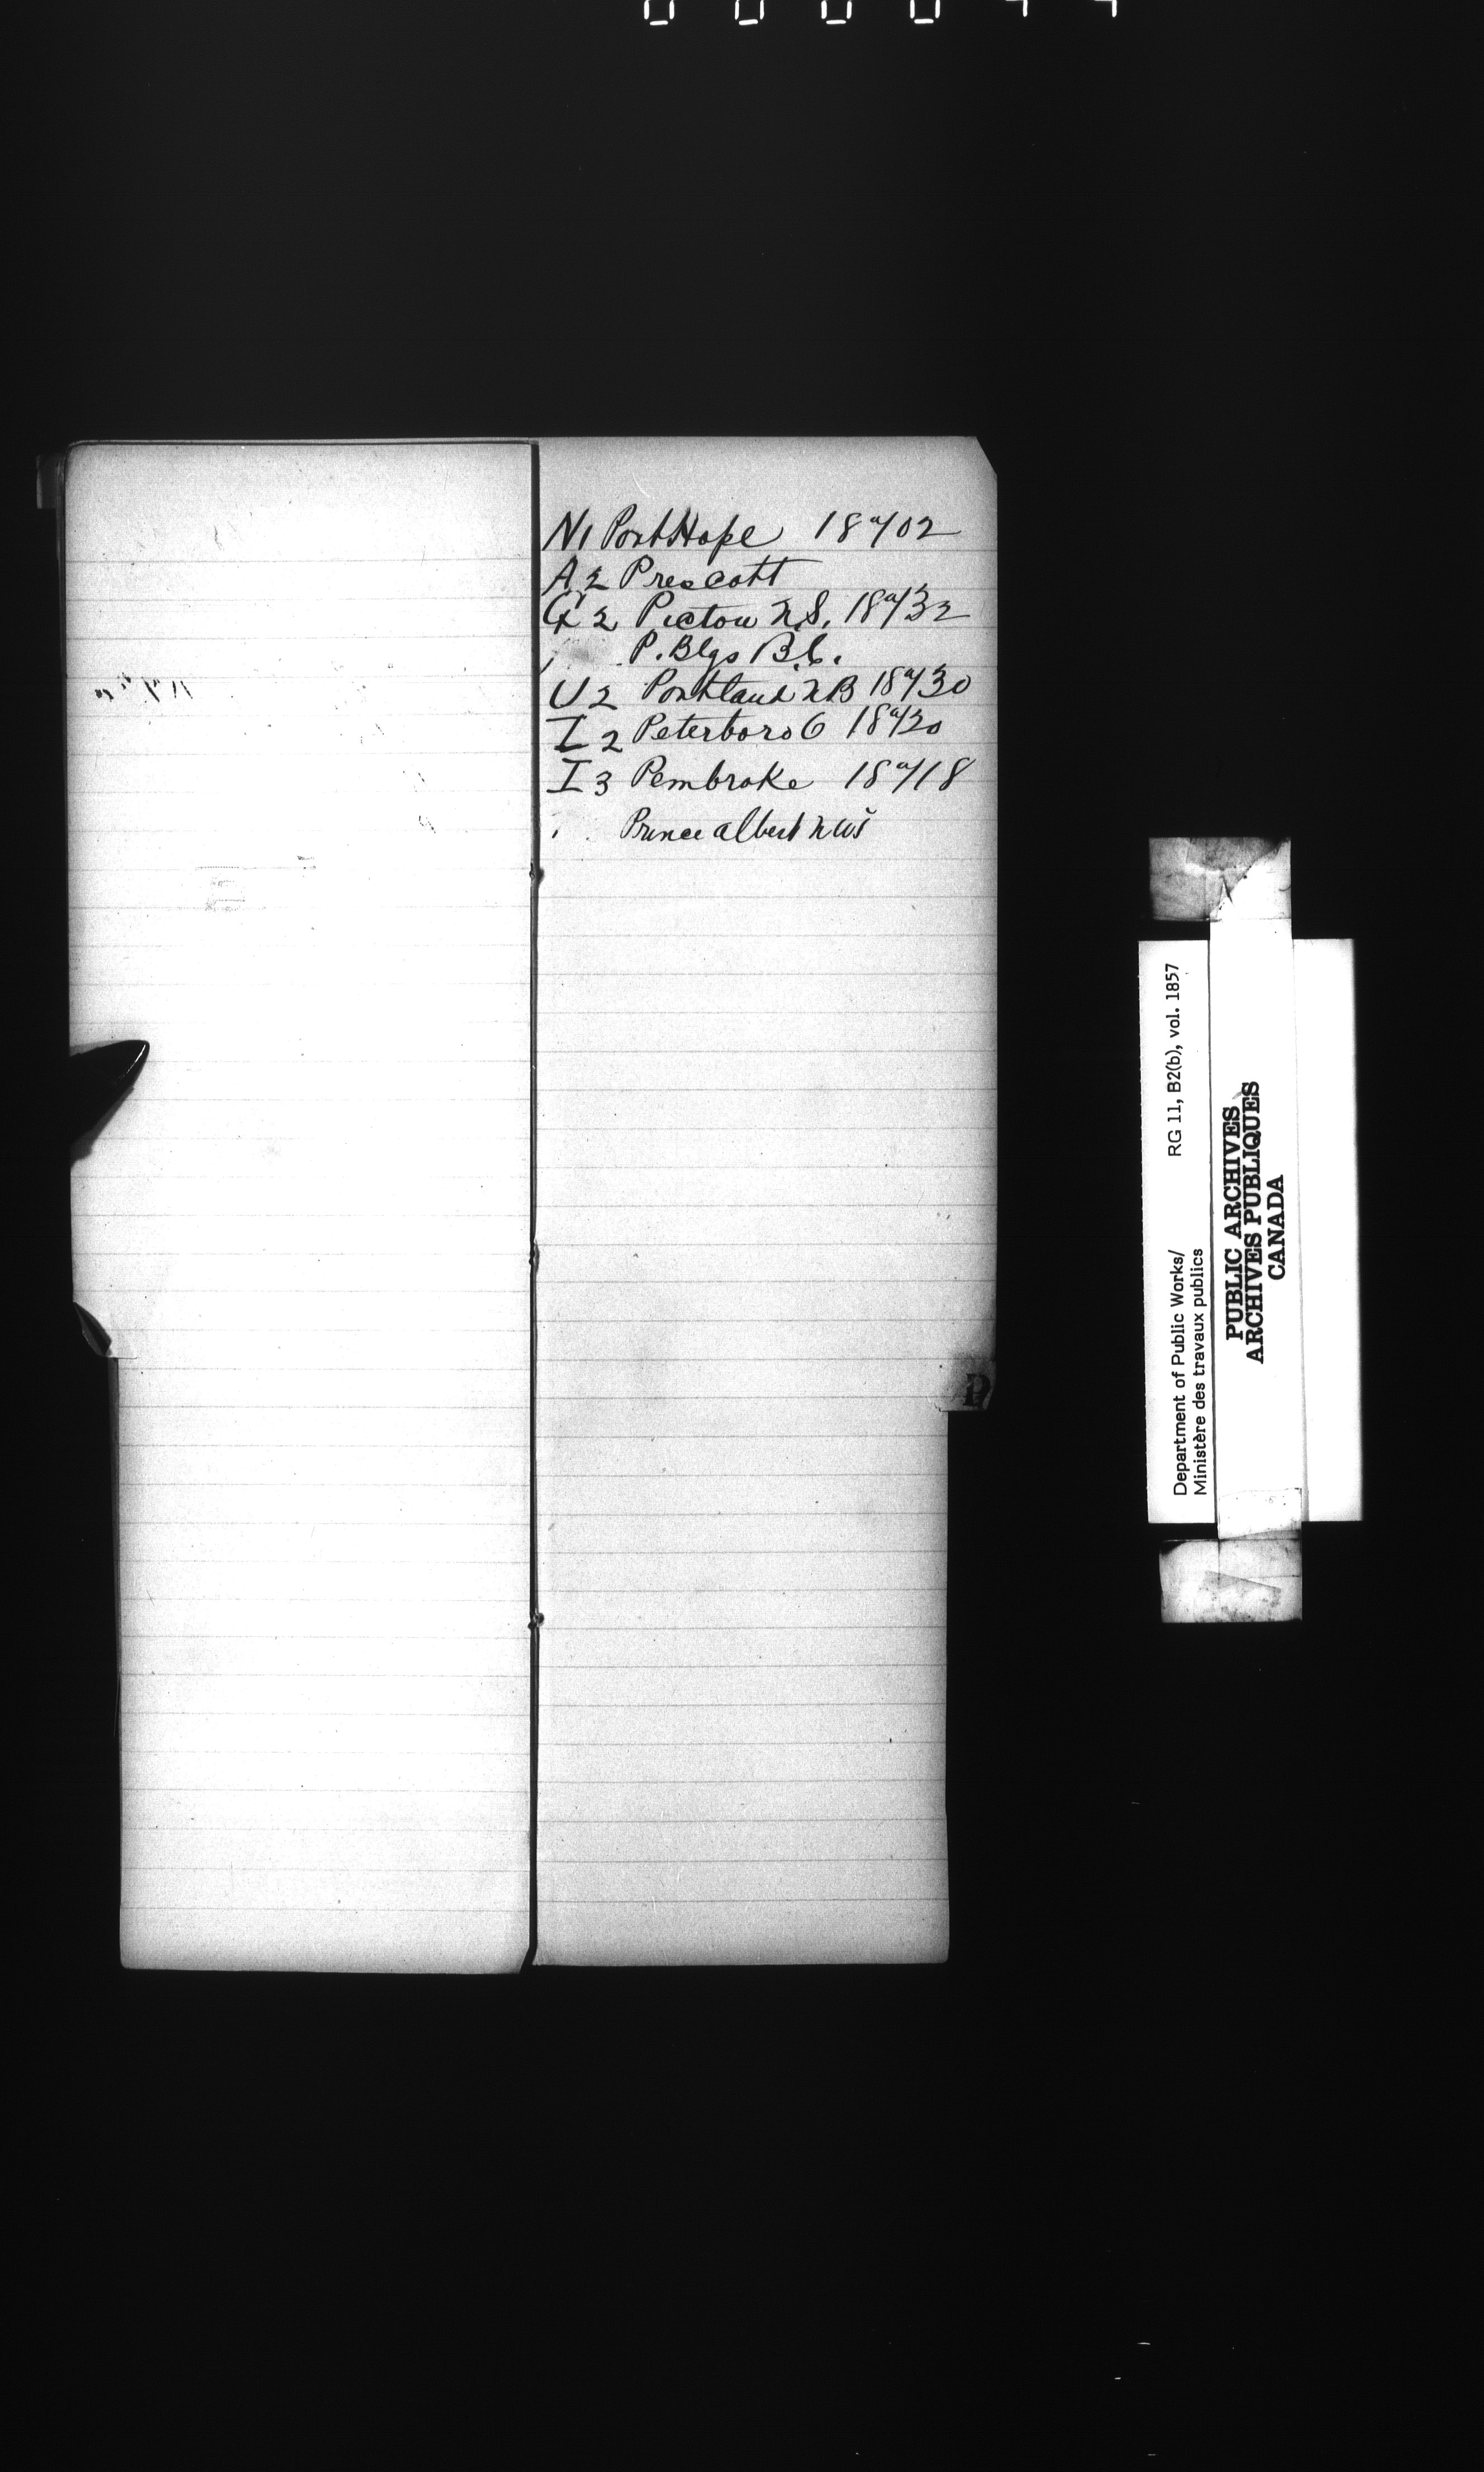 N1 Port Hope 18 a/02
A 2 Prescott
G 2 Pictou N.S. 18 a/32
P. Blgs B.C.
U 2 Portland NB 18 a/30
I 2 Peterboro O 18 a/20
I 3 Pembroke 18 a/18
Prince Albert NWT
P
Department of Public Works/
Ministère des travaux publics
RG 11, B2(b), vol. 1857
PUBLIC ARCHIVES
ARCHIVES PUBLIQUES
CANADA